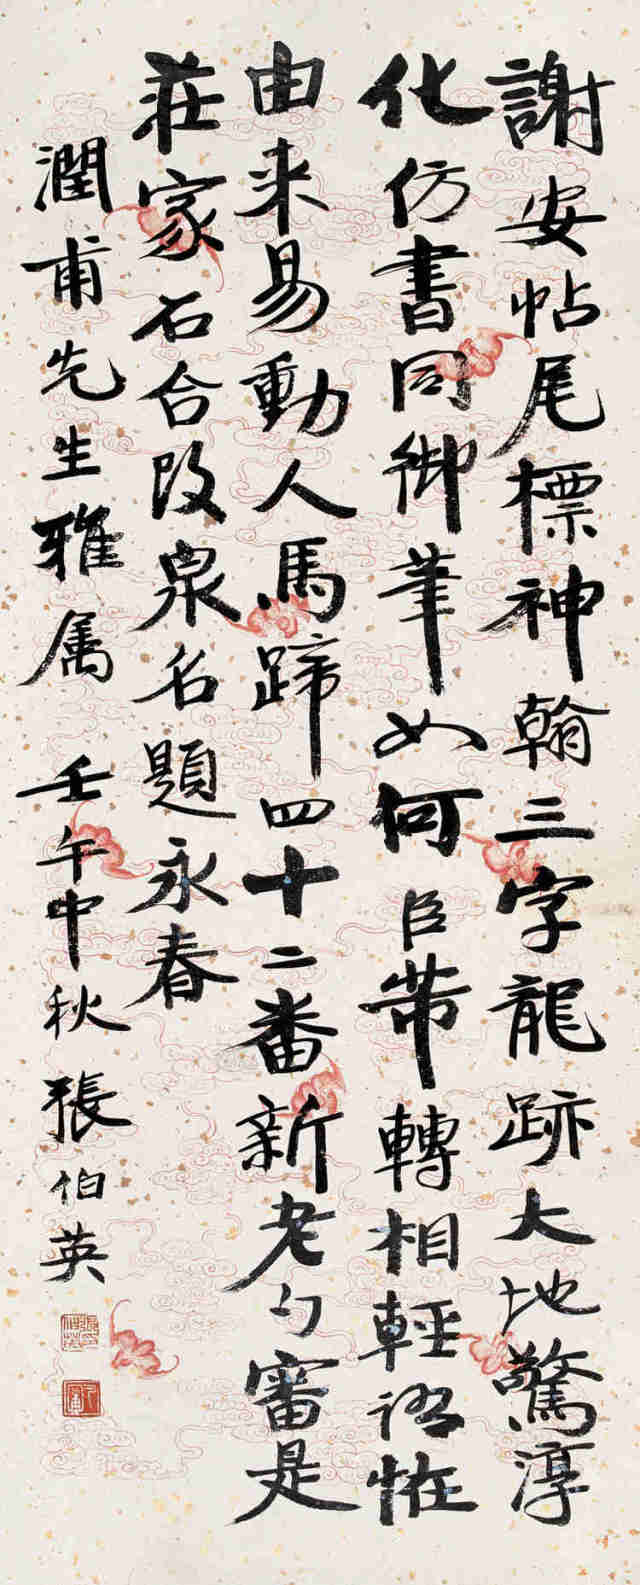 謝安帖尾標神翰三字龍跡大地驚淳
化仿書同御筆如何臣芾轉相輕恠
由来易動人馬蹄四十二番新老勻審是
莊家石合改泉名題永春
潤甫先生雅属 壬午中秋 張伯英